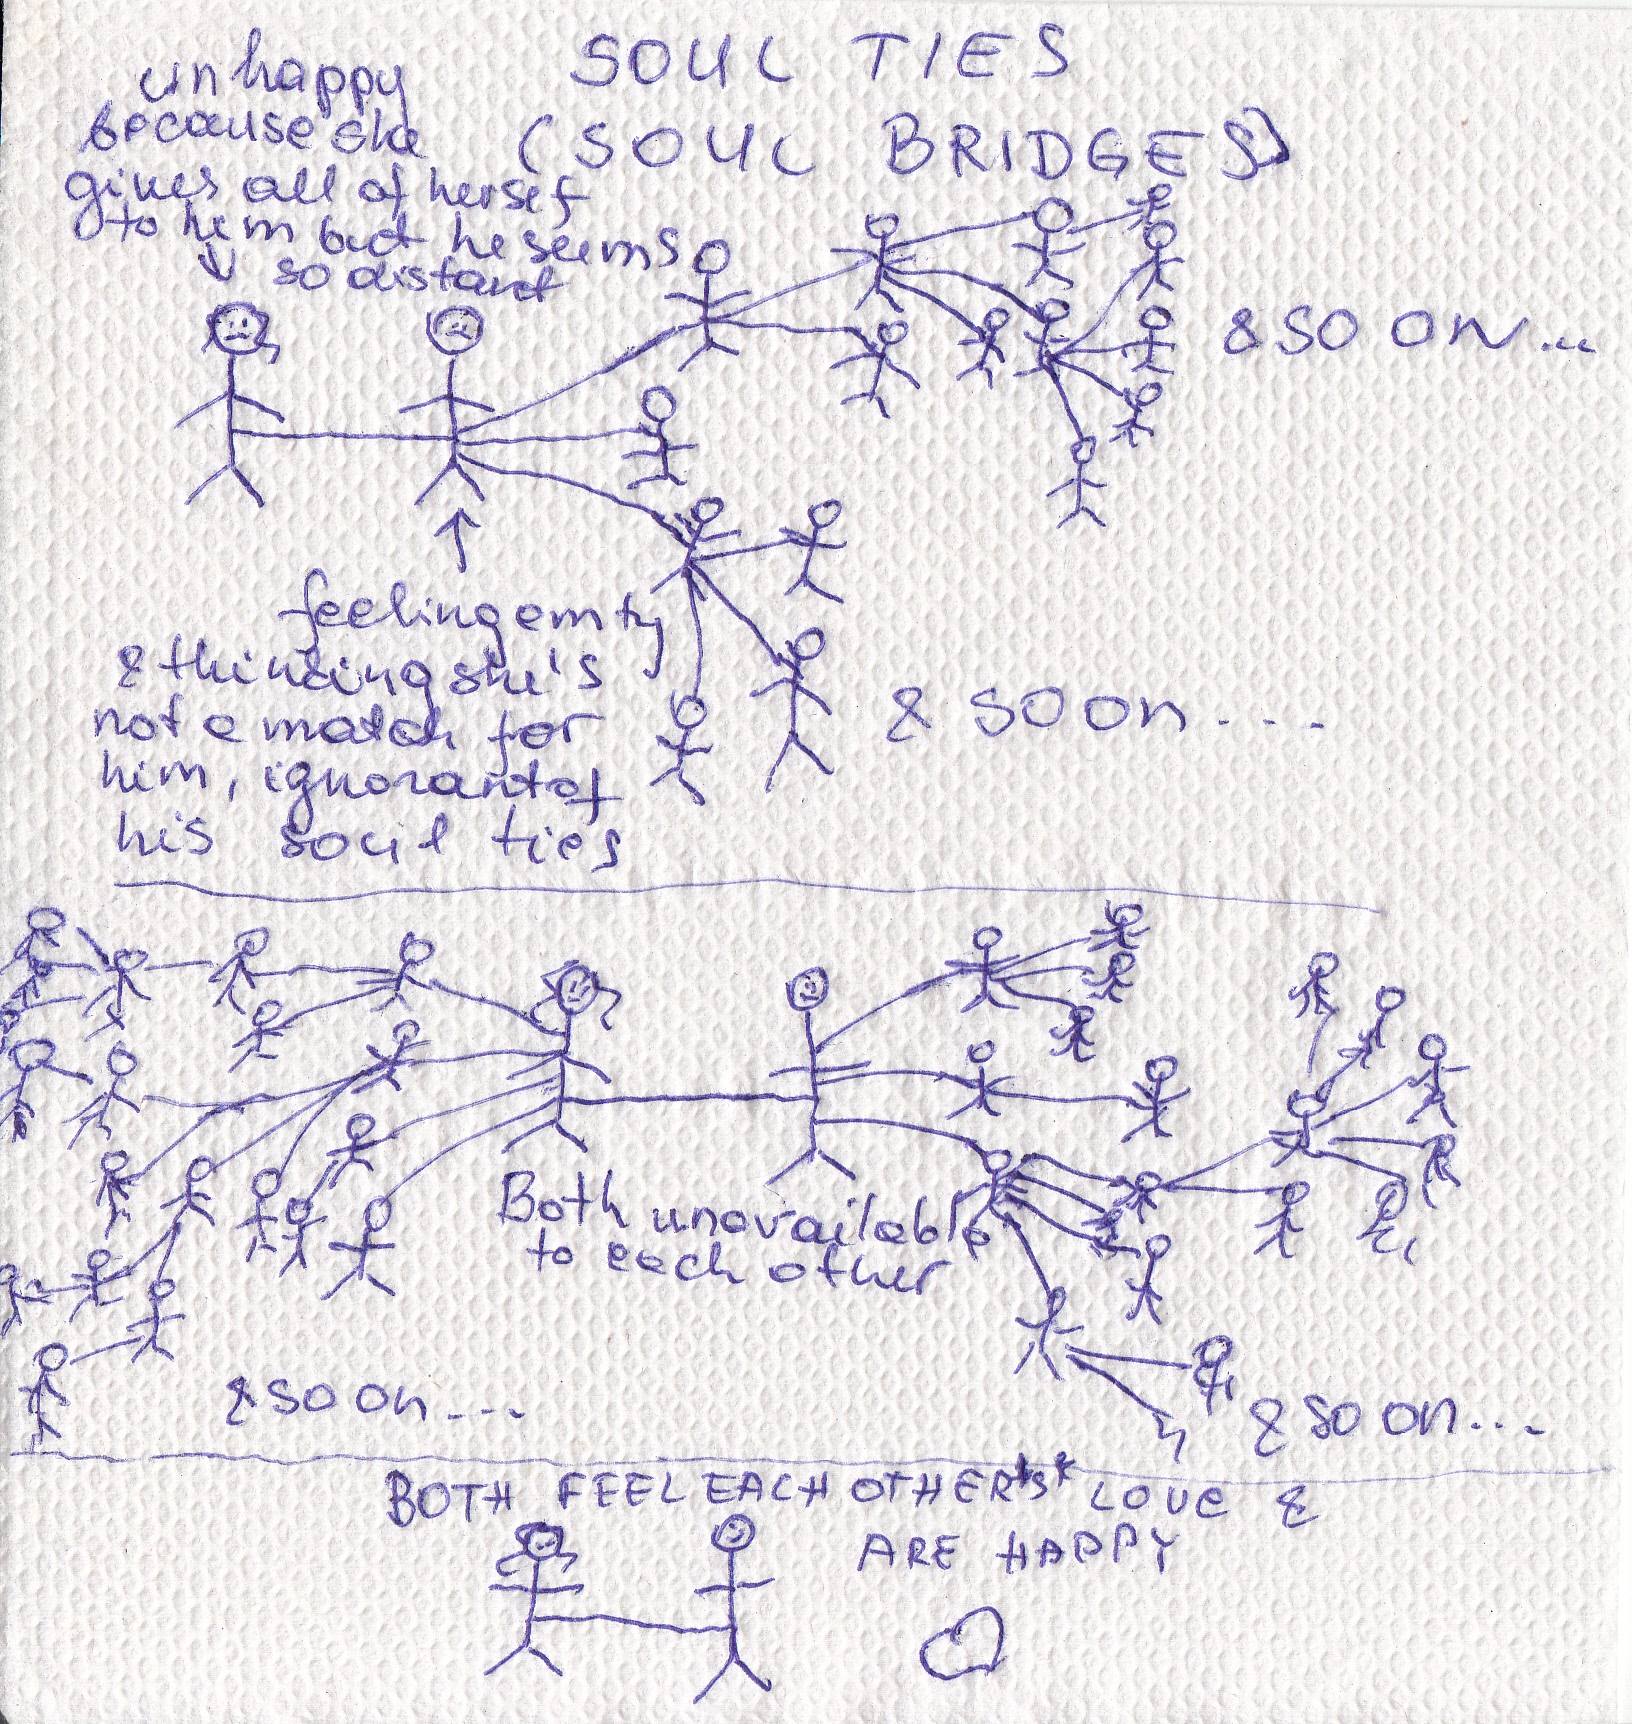 SOUL TIES
(SOUL BRIDGES)
unhappy
because she
gives all of herself
to him but he seems
so distant
& SO ON...
feeling emty
& thinking she's
not a match for
him, ignorant of
his soul ties
& so on....
Both unavailable
to each other
& so on...
& so on...
BOTH FEEL EACH OTHER'S LOVE &
ARE HAPPY